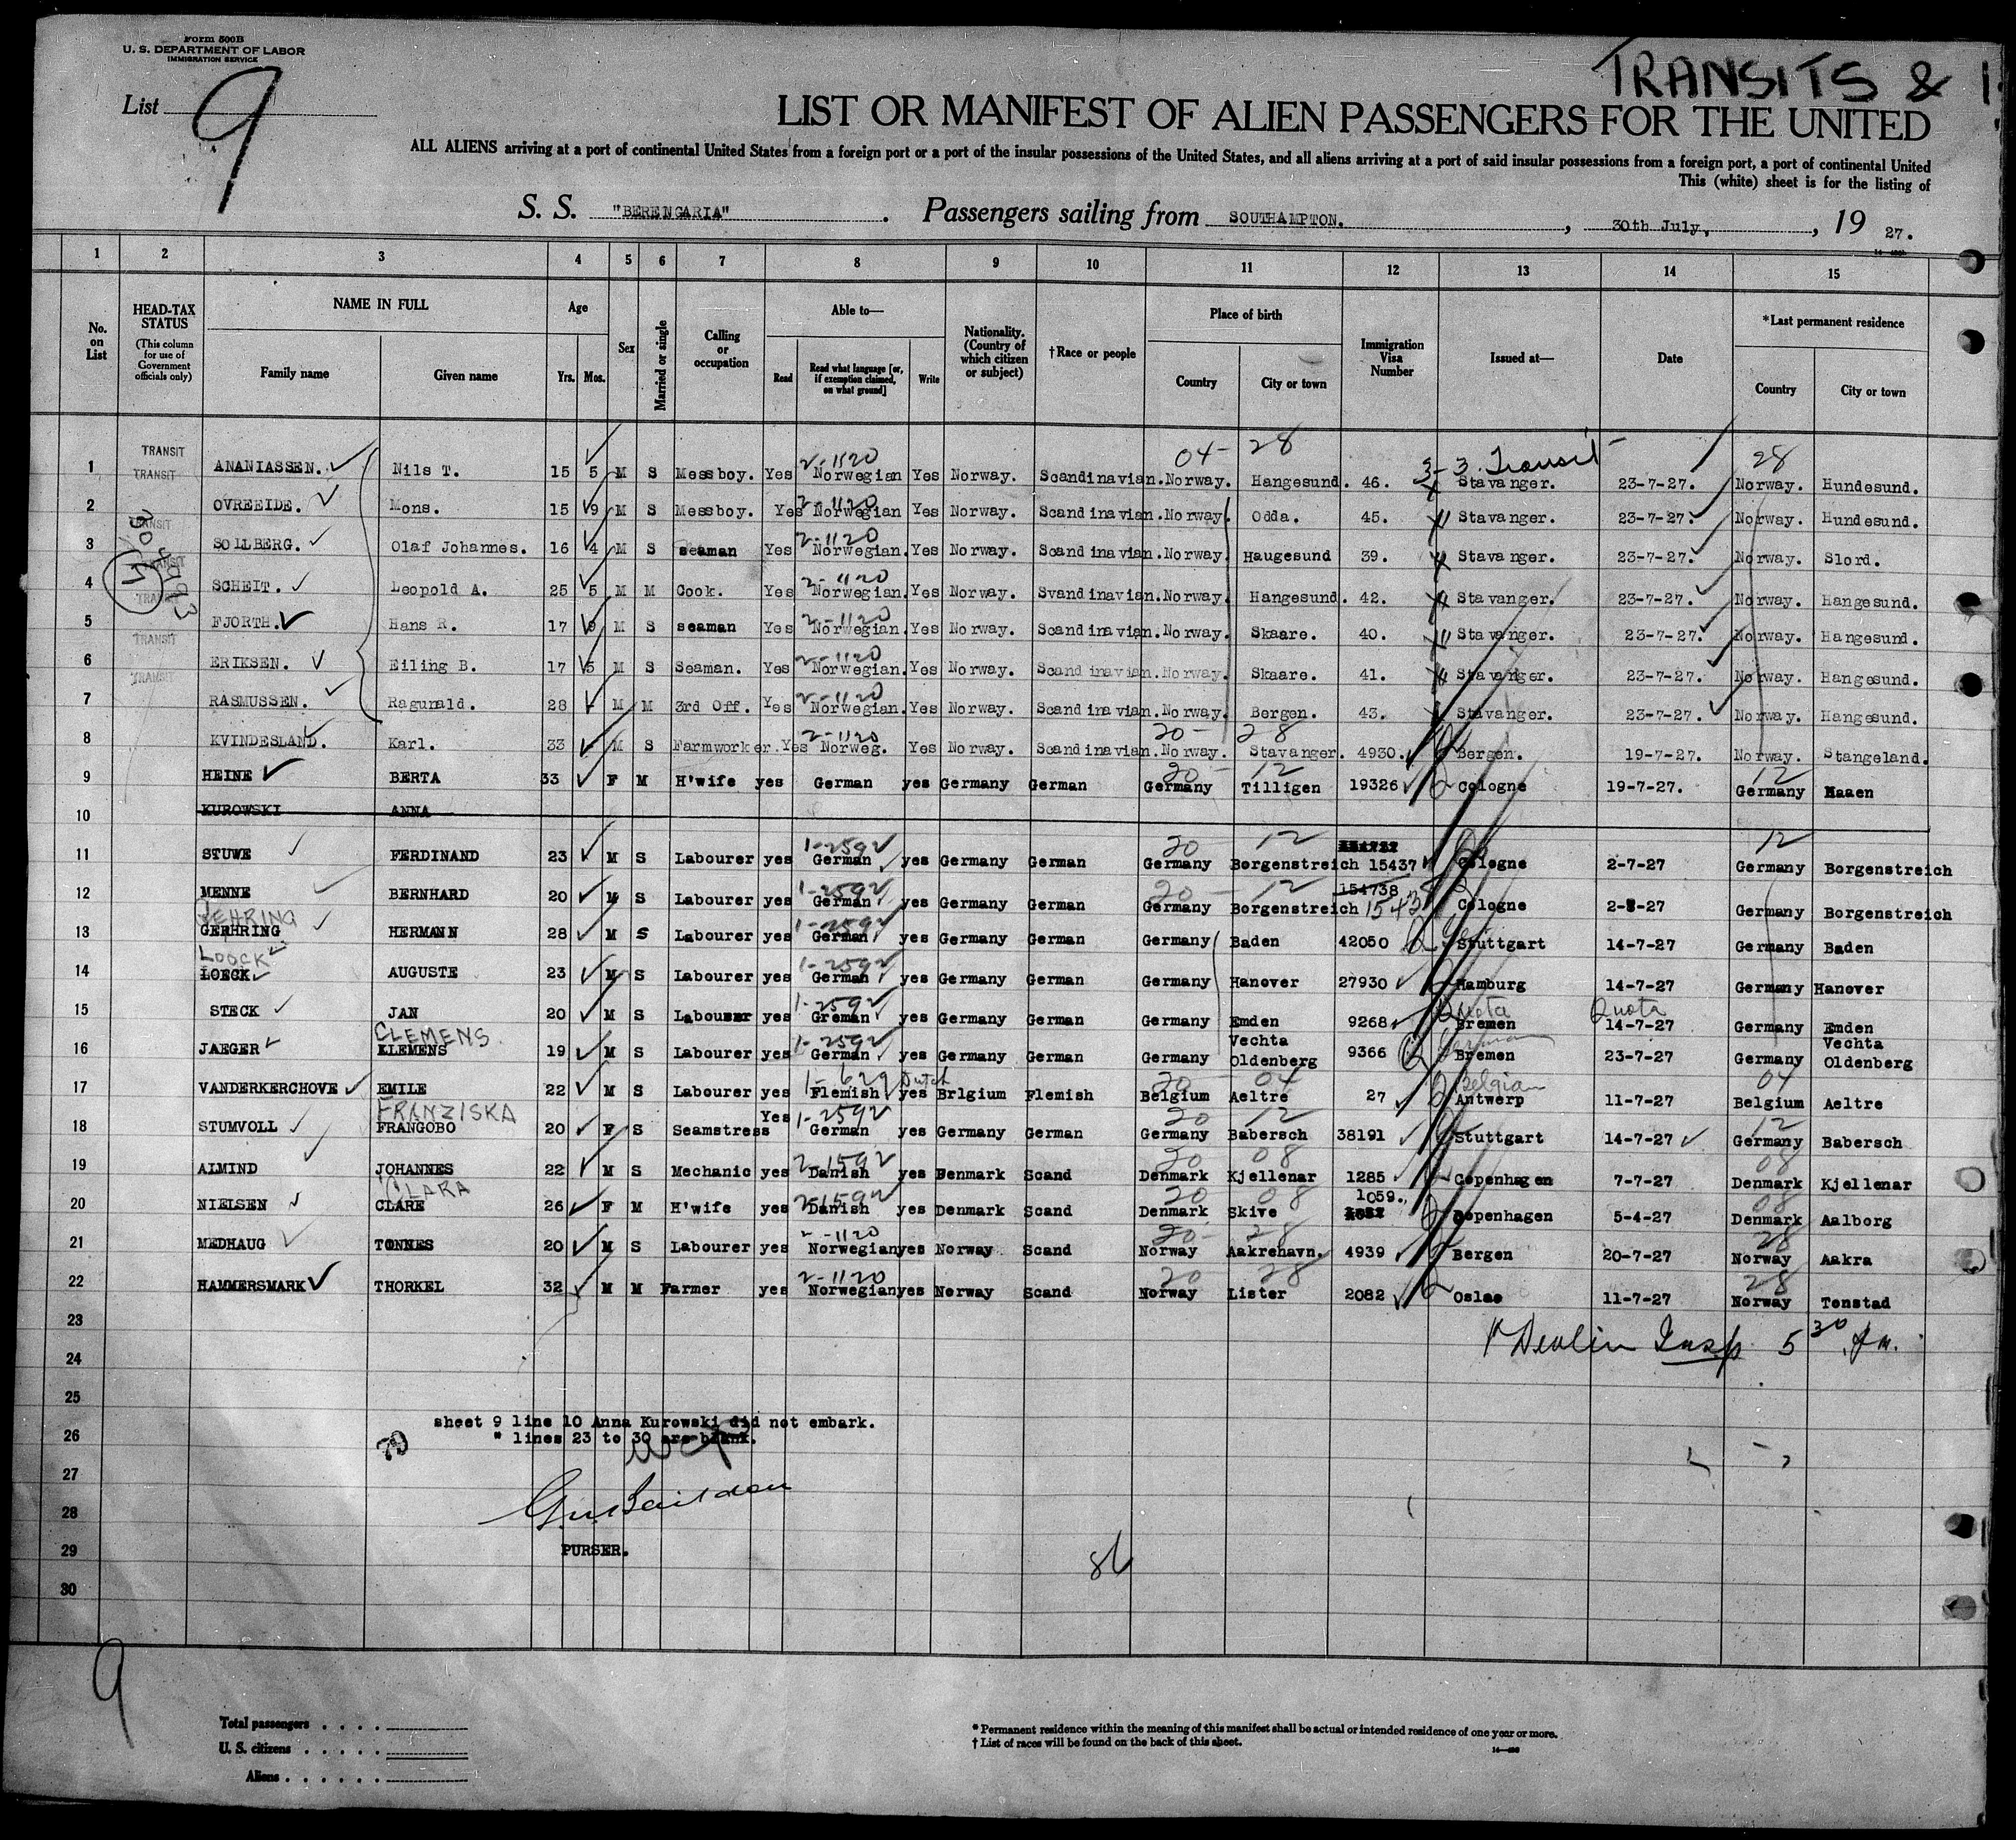 Form 500B
U. S. DEPARTMENT OF LABOR
IMMIGRATION SERVICE
TRANSITS &
List 9
LIST OR MANIFEST OF ALIEN PASSENGERS FOR THE UNITED
ALL ALIENS arriving at a port of continental United States from a foreign port or a port of the insular possessions of the United States, and all aliens arriving at a port of said insular possessions from a foreign port, a port of continental United
This (white) sheet is for the listing of
S. S. "BERENGARIA". Passengers sailing from SOUTHAMPTON. , 30th July. , 19 27.
1 2 3 4 5 6 7 8 9 10 11 12 13 14 15
No. on List
HEAD-TAX STATUS (This column for use of Government officials only)
NAME IN FULL Family name Given name
Age Yrs. Mos.
Sex
Married or single
Calling or occupation
Able to— Read Read what language [or, if exemption claimed, on what ground] Write
Nationality. (Country of which citizen or subject)
†Race or people
Place of birth Country City or town
Immigration Visa Number
Issued at—
Date
*Last permanent residence Country City or town
04- 28 3-3. Transit 28
1 TRANSIT TRANSIT ANANIASSEN. Nils T. 15 5 M S Messboy. Yes 2-1120 Norwegian Yes Norway. Scandinavian. Norway. Hangesund. 46. Stavanger. 23-7-27. Norway. Hundesund.
2 OVREEIDE. Mons. 15 9 M S Messboy. Yes 2-1120 Norwegian Yes Norway. Scandinavian. Norway. Odda. 45. Stavanger. 23-7-27. Norway. Hundesund.
3 TRANSIT SOLLBERG. Olaf Johannes. 16 4 M S seaman Yes 2-1120 Norwegian. Yes Norway. Scandinavian. Norway. Haugesund 39. Stavanger. 23-7-27. Norway. Slord.
4 TRANSIT SCHEIT. Leopold A. 25 5 M M Cook. Yes 2-1120 Norwegian. Yes Norway. Svandinavian. Norway. Hangesund. 42. Stavanger. 23-7-27. Norway. Hangesund.
5 FJORTH. Hans R. 17 9 M S seaman Yes 2-1120 Norwegian. Yes Norway. Scandinavian. Norway. Skaare. 40. Stavanger. 23-7-27. Norway. Hangesund.
6 TRANSIT ERIKSEN. Eiling B. 17 5 M S Seaman. Yes 2-1120 Norwegian. Yes Norway. Scandinavian. Norway. Skaare. 41. Stavanger. 23-7-27. Norway. Hangesund.
7 TRANSIT RASMUSSEN. Ragunald. 28 M M 3rd Off. Yes 2-1120 Norwegian. Yes Norway. Scandinavian. Norway. Bergen. 43. Stavanger. 23-7-27. Norway. Hangesund.
8 KVINDESLAND. Karl. 33 M S Farmworker. Yes 2-1120 Norweg. Yes Norway. Scandinavian. 20- 28 Norway. Stavanger. 4930. Bergen. 19-7-27. Norway. Stangeland.
9 HEINE BERTA 33 F M H'wife yes German yes Germany German 20- 12 Germany Tilligen 19326 Cologne 19-7-27. 12 Germany Haaen
10 KUROWSKI ANNA
11 STUWE FERDINAND 23 M S Labourer yes 1-2592 German yes Germany German 20 12 Germany Borgenstreich 15437 Cologne 2-7-27 12 Germany Borgenstreich
12 MENNE BERNHARD 20 M S Labourer yes 1-2592 German yes Germany German 20- 12 Germany Borgenstreich 154738 15438 Cologne 2-8-27 Germany Borgenstreich
13 GEHRING GERHRING HERMANN 28 M S Labourer yes 1-2592 German yes Germany German Germany Baden 42050 Stuttgart 14-7-27 Germany Baden
14 LOOCK LOECK AUGUSTE 23 M S Labourer yes 1-2592 German yes Germany German Germany Hanover 27930 Hamburg 14-7-27 Germany Hanover
15 STECK JAN 20 M S Labouser yes 1-2592 Greman yes Germany German Germany Emden 9268 Quota Bremen Quota 14-7-27 Germany Emden
16 JAEGER CLEMENS KLEMENS 19 M S Labourer yes 1-2592 German yes Germany German Germany Vechta Oldenberg 9366 German Bremen 23-7-27 Germany Vechta Oldenberg
17 VANDERKERCHOVE EMILE 22 M S Labourer yes 1-629 Dutch Flemish yes Brlgium Flemish 20 04 Belgium Aeltre 27 Belgian Antwerp 11-7-27 04 Belgium Aeltre
18 STUMVOLL FRANZISKA FRANGOBO 20 F S Seamstress Yes 1-2592 German yes Germany German 20 12 Germany Babersch 38191 Stuttgart 14-7-27 12 Germany Babersch
19 ALMIND JOHANNES 22 M S Mechanic yes 2-1592 Danish yes Denmark Scand 20 08 Denmark Kjellenar 1285 Copenhagen 7-7-27 08 Denmark Kjellenar
20 NIELSEN CLARA CLARE 26 F M H'wife yes 2-1592 Danish yes Denmark Scand 20 08 Denmark Skive 1059. Copenhagen 5-4-27 08 Denmark Aalborg
21 MEDHAUG TONNES 20 M S Labourer yes 2-1120 Norwegian yes Norway Scand 20- 28 Norway Aakrehavn. 4939 Bergen 20-7-27 28 Norway Aakra
22 HAMMERSMARK THORKEL 32 M M Farmer yes 2-1120 Norwegian yes Norway Scand 20 28 Norway Lister 2082 Osloe 11-7-27 28 Norway Tonstad
23 Devlin Insp 5 30 p.m.
24
25
sheet 9 line 10 Anna Kurowski did not embark.
26 " lines 23 to 30 are blank.
27
28
29 PURSER.
30
9
Total passengers . . . .
U. S. citizens . . . . .
Aliens . . . . . .
* Permanent residence within the meaning of this manifest shall be actual or intended residence of one year or more.
† List of races will be found on the back of this sheet.